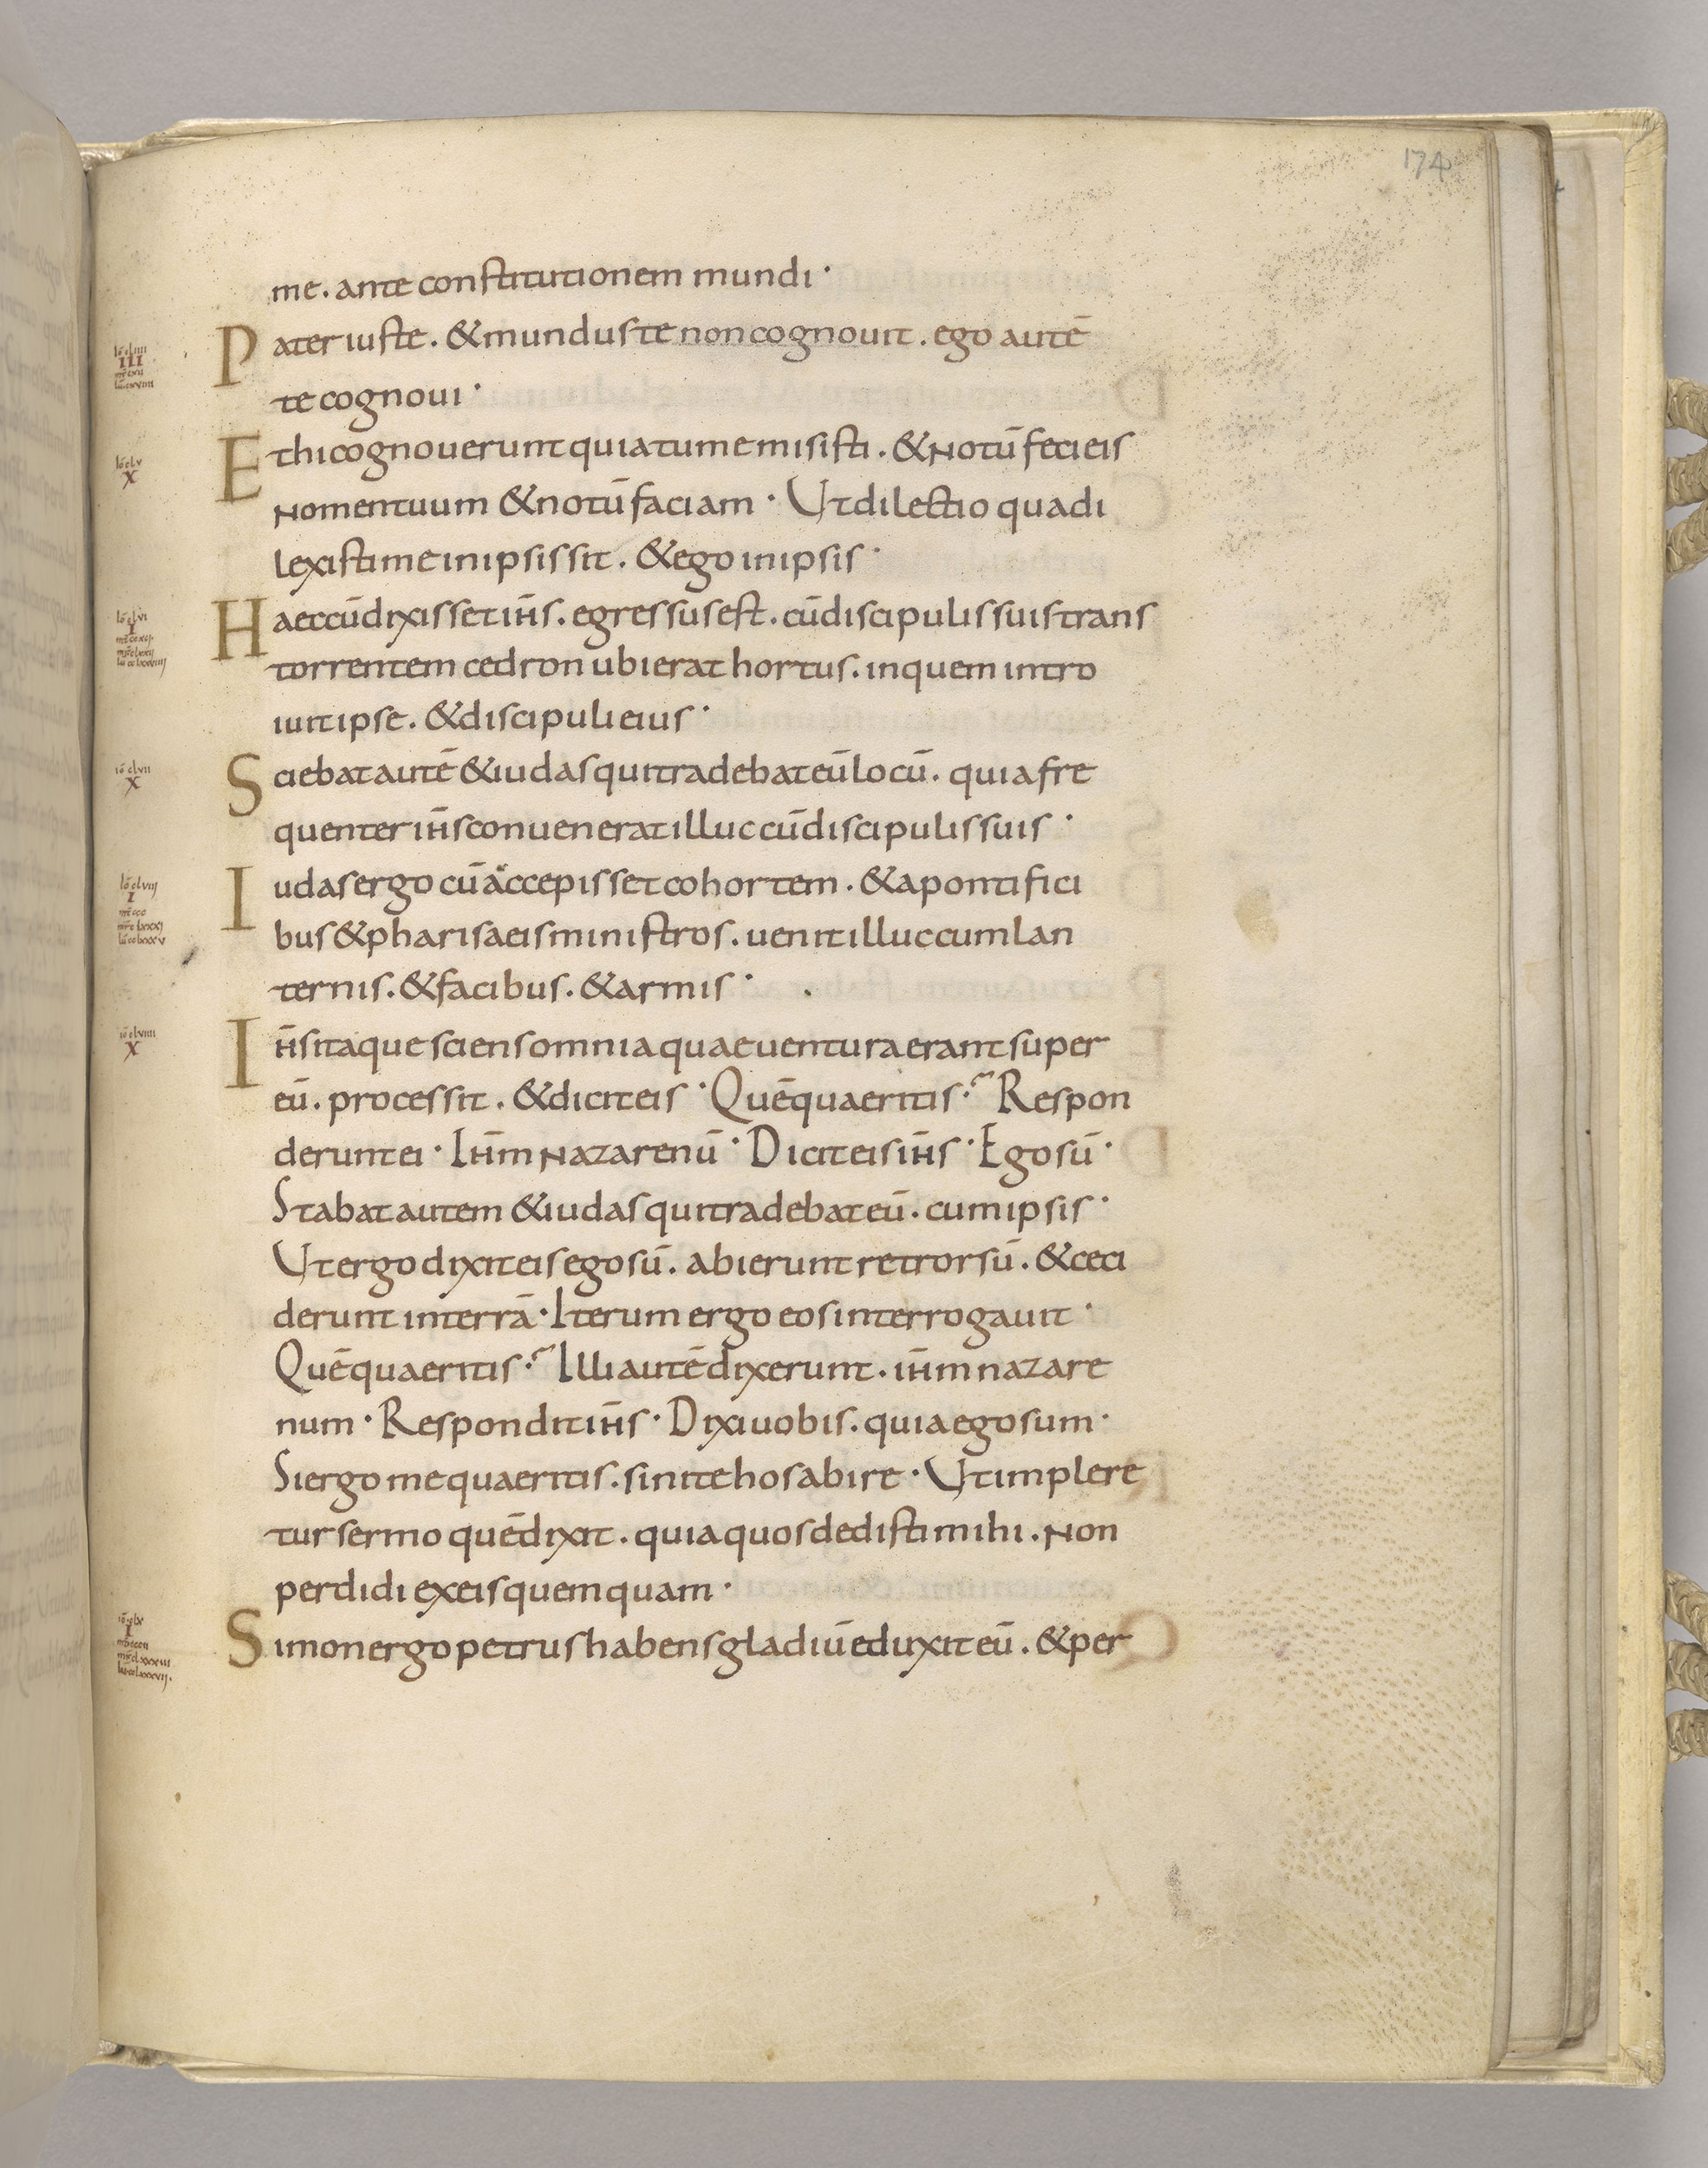 174
me. ante constitutionem mundi·
Pater iuste. & mundus te non cognouit. ego autē
te cognoui·
Et hi cognouerunt quia tu me misisti. & Notū feci eis
Nomen tuum & notū faciam· Ut dilectio qua di
lexisti me in ipsis sit. & ego in ipsis·
Haec cū dixisset ih̄s. egressus est. cū discipulis suis trans
torrentem cedron ubi erat hortus. in quem intro
iuit ipse. & discipuli eius·
Sciebat autē & iudas qui tradebat eū locū. quia fre
quenter ih̄s conuenerat illuc cū discipulis suis·
Iudas ergo cū accepisset cohortem. & a pontifici
bus & pharisaeis ministros. uenit illuc cum lan
ternis. & facibus. & armis·
Ih̄s itaque sciens omnia quae uentura erant super
eū. processit. & dicit eis· Quē quaeritis? Respon
derunt ei· Ih̄m Nazarenū· Dicit eis ih̄s· Ego sū·
Stabat autem & iudas qui tradebat eū. cum ipsis·
Ut ergo dixit eis ego sū. abierunt retrorsū. & ceci
derunt in terrā· Iterum ergo eos interrogauit·
Quē quaeritis? Illi autē dixerunt. ih̄m nazare
num· Respondit ih̄s· Dixi uobis. quia ego sum·
Si ergo me quaeritis. sinite hos abire· Ut implere
tur sermo quē dixit. quia quos dedisti mihi. Non
perdidi ex eis quemquam·
Simon ergo petrus habens gladiū eduxit eū. & per